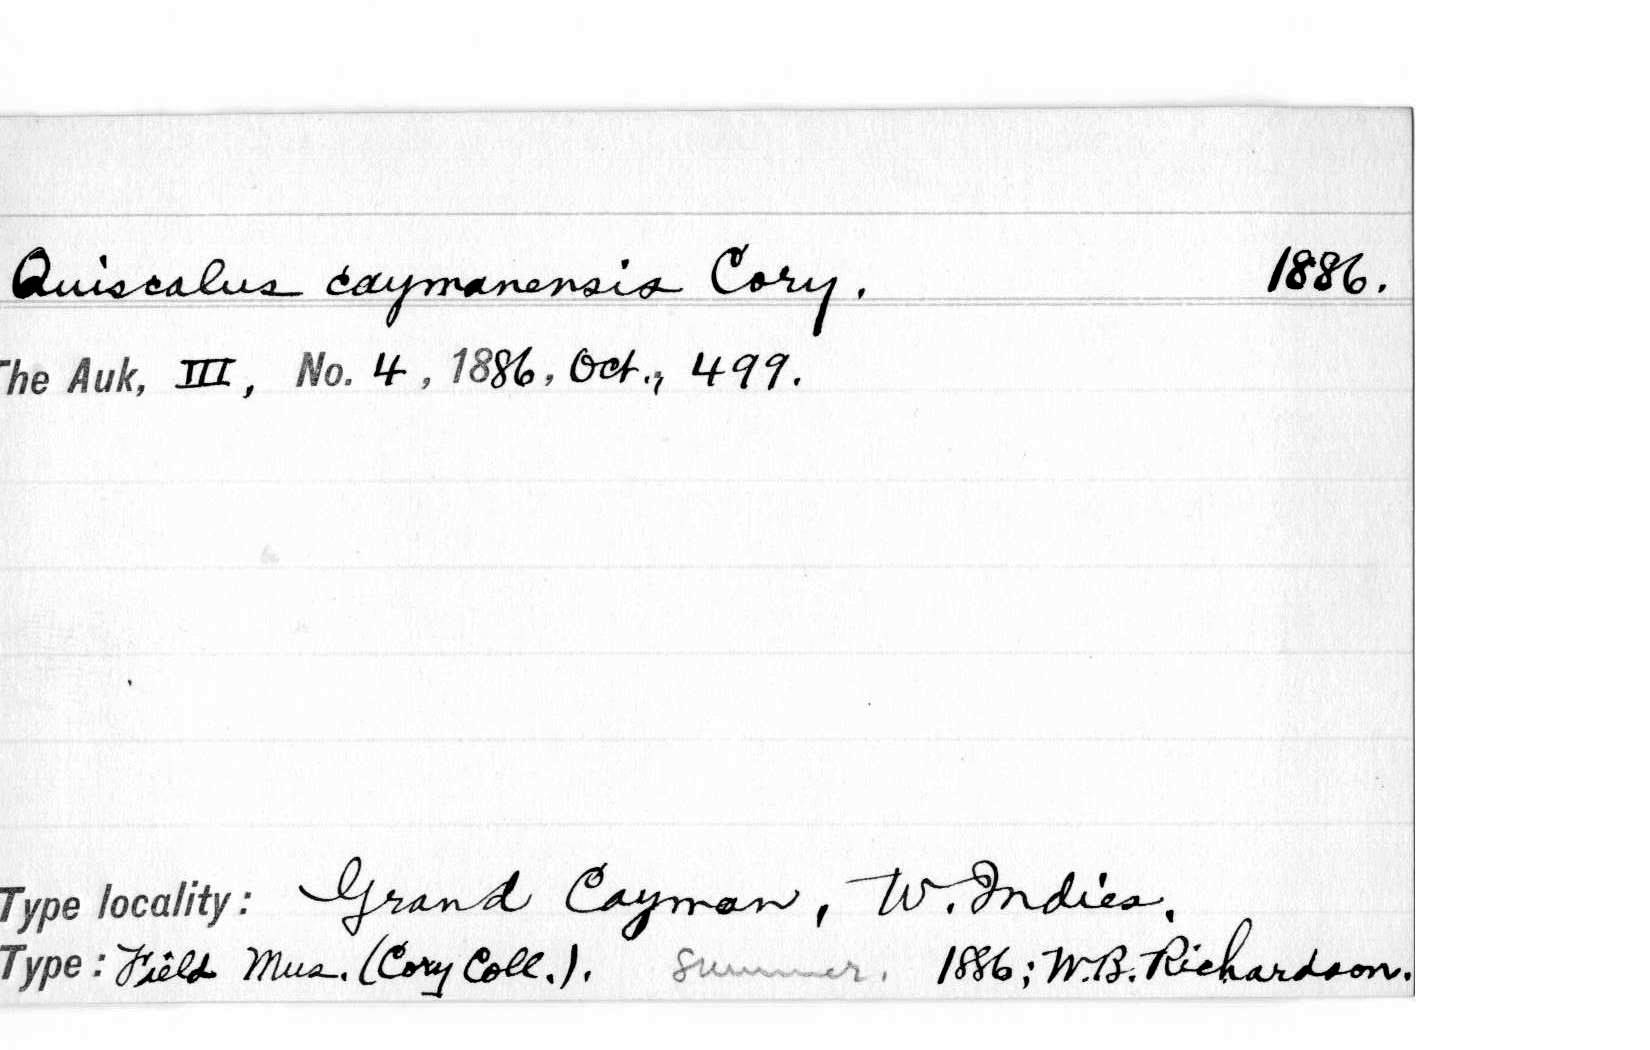 Quiscalus caymanensis Cory. 1886.
The Auk, III, No. 4, 1886, Oct., 499.
Type locality: Grand Cayman, W. Indies.
Type: Field Mus. (Cory Coll.). Summer. 1886; W.B. Richardson.